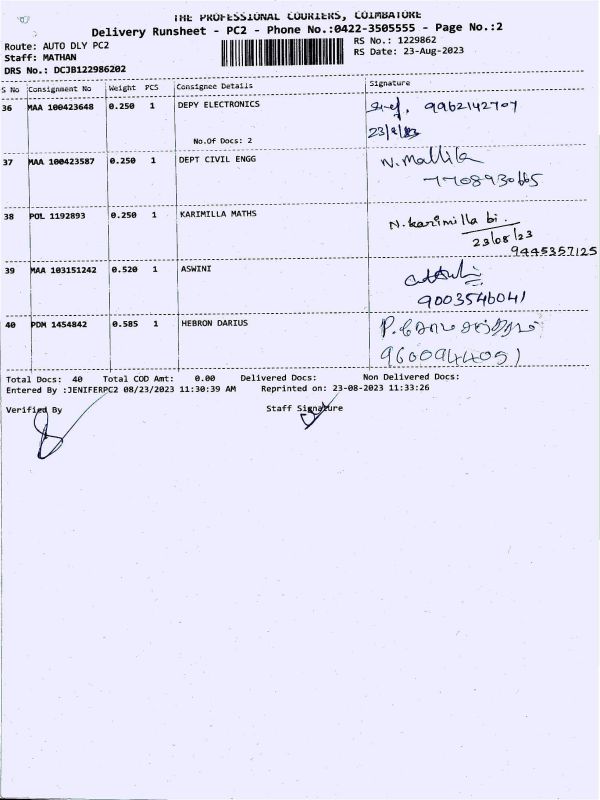 THE PROFESSIONAL COURIERS, COIMBATORE
Delivery Runsheet - PC2 - Phone No.:0422-3505555 - Page No.:2
Route: AUTO DLY PC2 RS No.: 1229862
Staff: MATHAN RS Date: 23-Aug-2023
DRS No.: DCJB122986202
S No Consignment No Weight PCS Consignee Details Signature
36 MAA 100423648 0.250 1 DEPY ELECTRONICS 9962142707
No.Of Docs: 2 23/8/23
37 MAA 100423587 0.250 1 DEPT CIVIL ENGG N. Mallika
7708930665
38 POL 1192893 0.250 1 KARIMILLA MATHS N. karimilla bi.
23/08/23
9445357125
39 MAA 103151242 0.520 1 ASWINI
9003546041
40 PDM 1454842 0.585 1 HEBRON DARIUS
9600944051
Total Docs: 40 Total COD Amt: 0.00 Delivered Docs: Non Delivered Docs:
Entered By :JENIFERPC2 08/23/2023 11:30:39 AM Reprinted on: 23-08-2023 11:33:26
Verified By Staff Signature